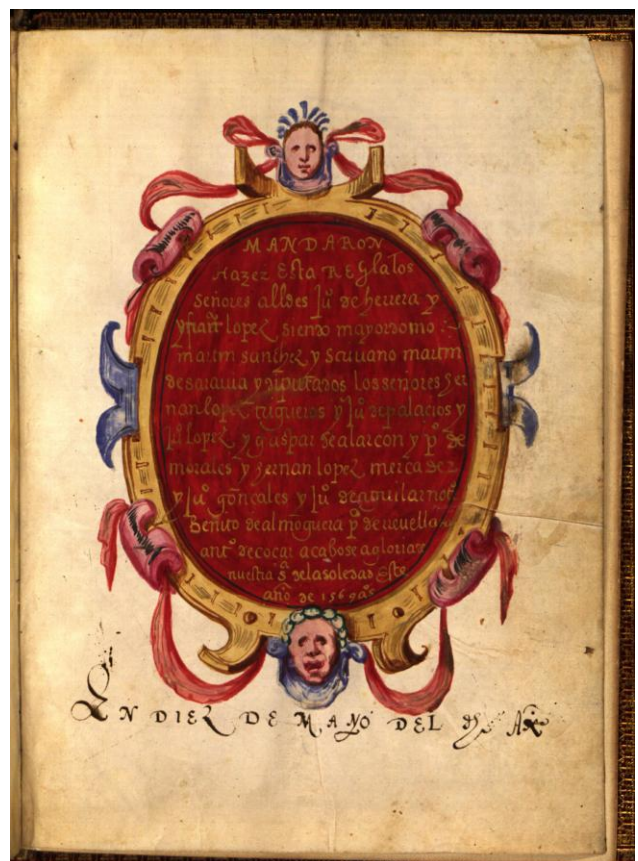 MANDARON
Hazer Esta REgla los
señores alldes Ju° de herrera y
lopez siendo mayordomo
martin sanchez y scriuano martin
de sarauia y diputados los señores her
nan lopez trigueros y Ju° de palacios y
Ju° lopez y gaspar de alarcon y p° de
morales y hernan lopez mercader
y Ju° gonçales y Ju° de aguilar
Benito de almoguera p° de
ant° de cocar acabose a gloria
nuestra sa de la soledad Este
año de 1569 as
EN DIEZ DE MAYO DEL